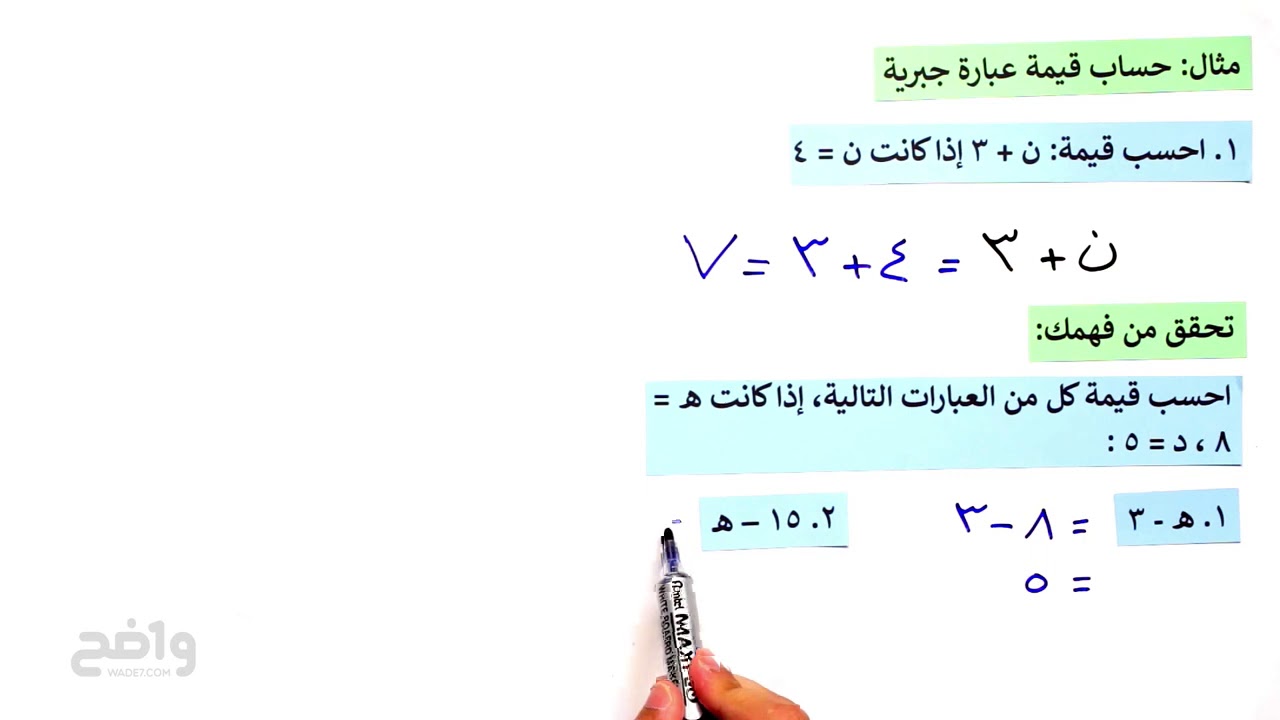 مثال: حساب قيمة عبارة جبرية
١. احسب قيمة: ن + ٣ إذا كانت ن = ٤
ن + ٣ = ٤ + ٣ = ٧
تحقق من فهمك:
احسب قيمة كل من العبارات التالية، إذا كانت ھ =
٨ ، د = ٥ :
١. ھ - ٣ = ٨ - ٣
= ٥
٢. ١٥ – ھ
واضح
WADE7.COM
Pentel MAXIFLO
WHITE BOARD MARKER